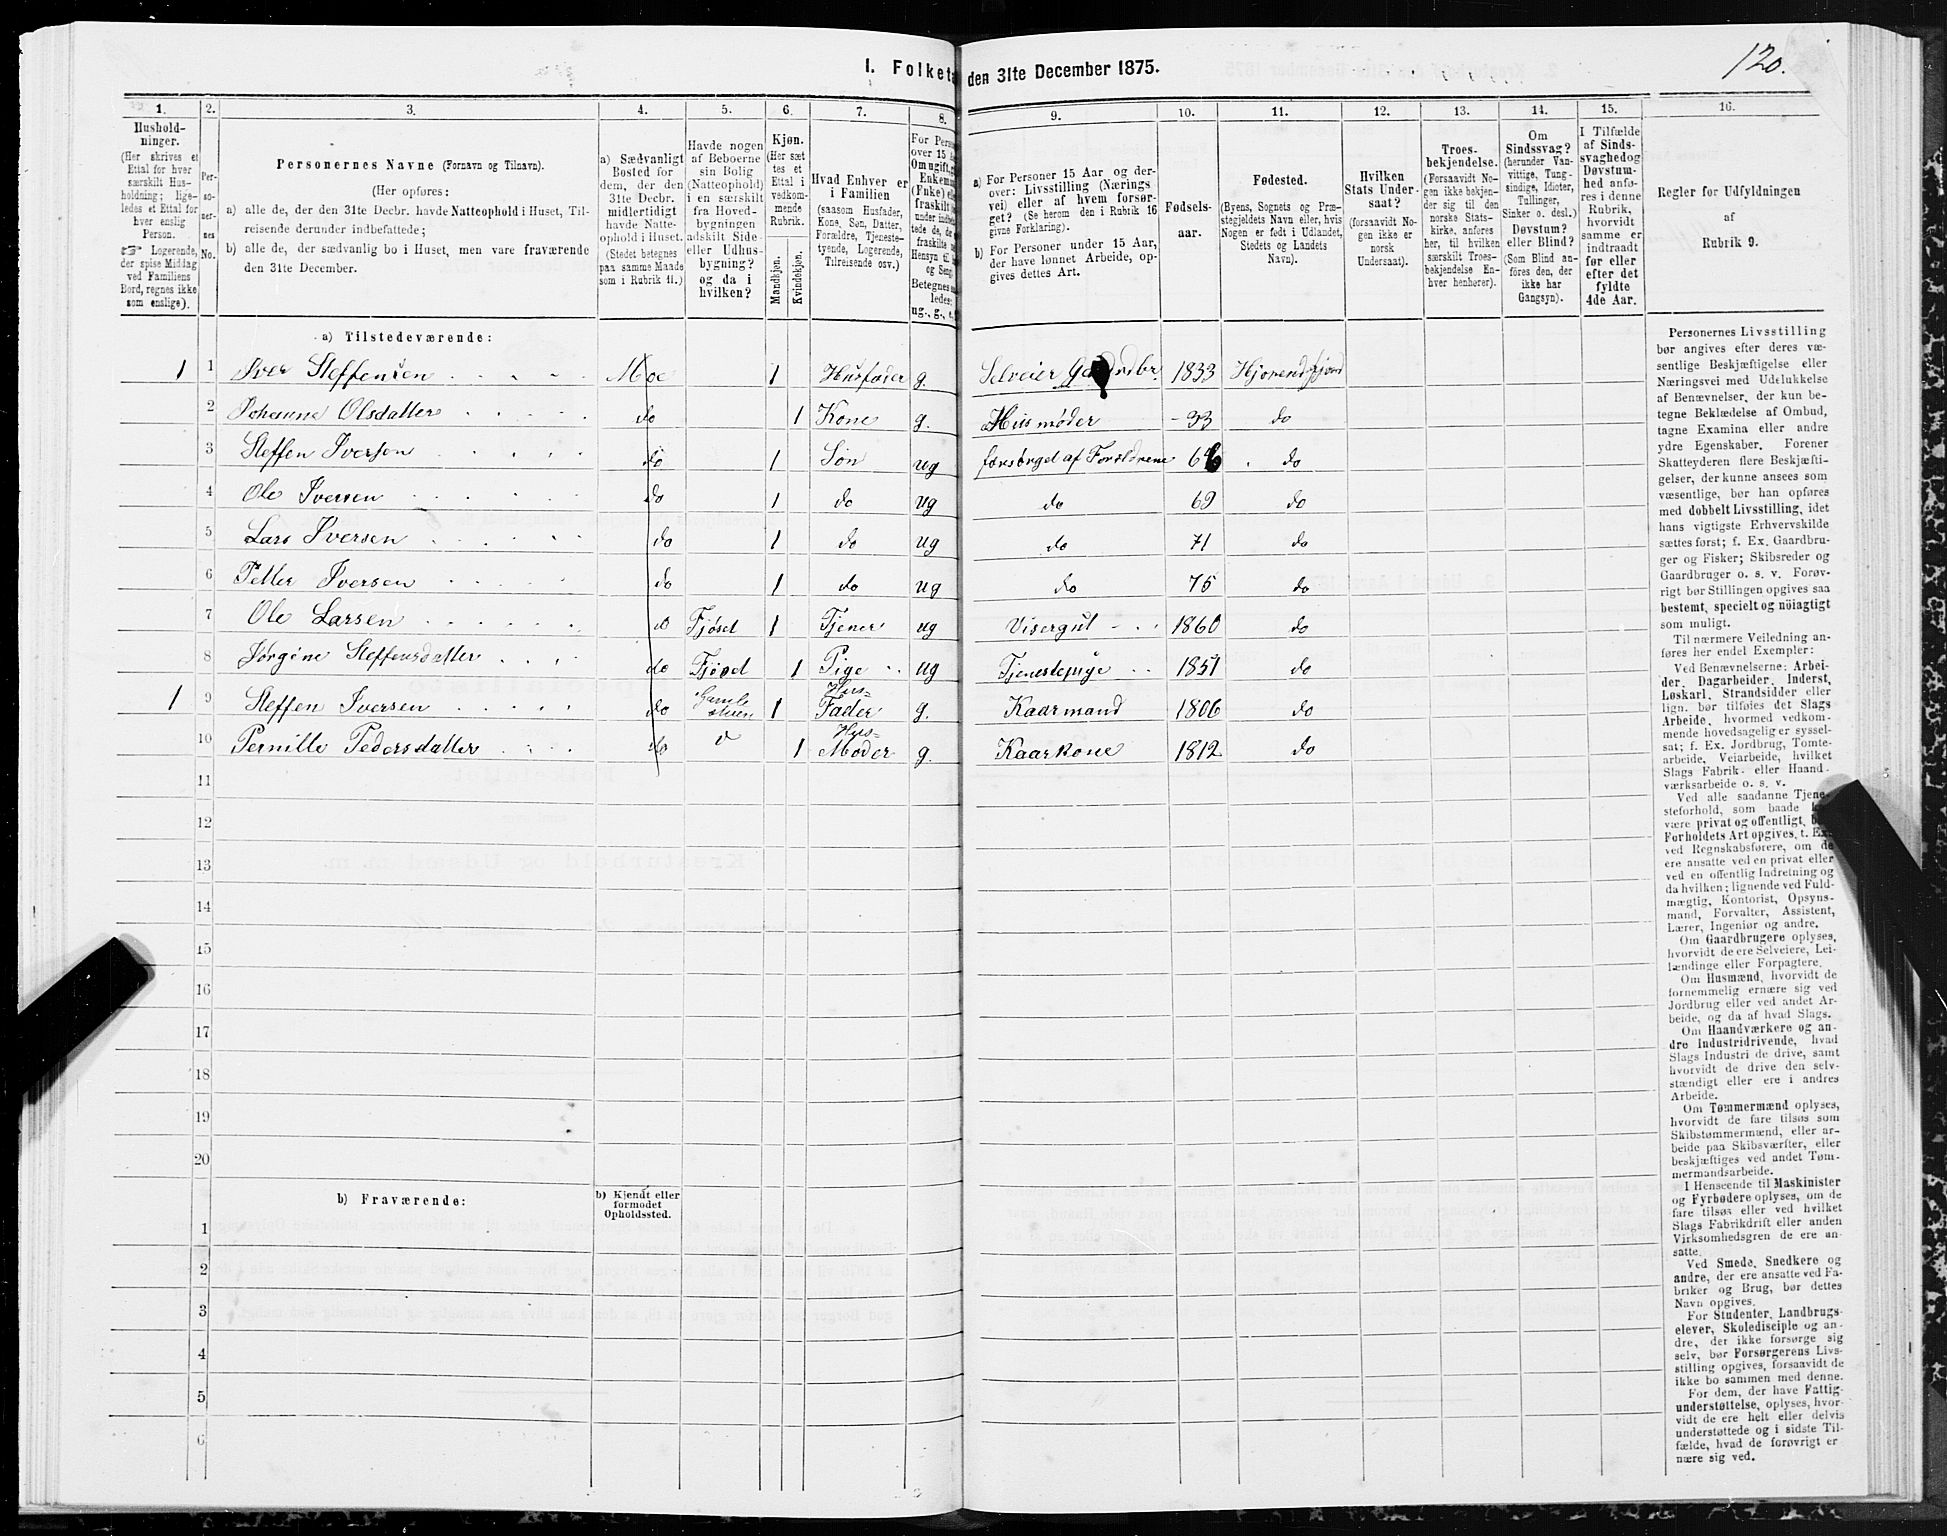 120.
1. Folketæ den 31te December 1875.
1. 2. 3. 4. 5. 6. 7. 8. 9. 10. 11. 12. 13. 14. 15. 16.
Hushold-
ninger.
(Her skrives et
Ettal for hver
særskilt Hus-
holdning; lige-
ledes et Ettal for
hver enslig
Person.
☞ Logerende,
der spise Middag
ved Familiens
Bord, regnes ikke
som enslige).
Per-
so-
ner-
nes
No.
Personernes Navne (Fornavn og Tilnavn).
(Her opføres:
a) alle de, der den 31te Decbr. havde Natteophold i Huset, Til-
reisende derunder indbefattede;
b) alle de, der sædvanlig bo i Huset, men vare fraværende
den 31te December.
a) Sædvanligt
Bosted for
dem, der den
31te Decbr.
midlertidigt
havde Natte-
ophold i Huset.
(Stedet betegnes
paa samme Maade
som i Rubrik 11.)
Havde nogen
af Beboerne
sin Bolig
(Natteophold)
i en særskilt
fra Hoved-
bygningen
adskilt Side-
eller Udhus-
bygning?
og da i
hvilken?
Kjøn.
(Her sæt
tes et
Ettal i
vedkom-
mende
Rubrik.
Mandkjøn.
Kvindekjøn.
Hvad Enhver er
i Familien
(saasom Husfader,
Kone, Søn, Datter,
Forældre, Tjeneste-
tyende, Logerende,
Tilreisende osv.)
For Pers
over 15 A
Om ugift, g
Enkem
(Fnke) el
fraskilt
Betegnes
ledes:
ug., g., e.
a) For Personer 15 Aar og der-
over: Livsstilling (Nærings
vei) eller af hvem forsør-
get? (Se herom den i Rubrik 16
givne Forklaring).
b) For Personer under 15 Aar,
der have lønnet Arbeide, op-
gives dettes Art.
Fødsels-
aar.
Fødested.
(Byens, Sognets og Præ-
stegjeldets Navn eller, hvis
Nogen er født i Udlandet,
Stedets og Landets
Navn).
Hvilken
Stats Under-
saat?
(forsaavidt No-
gen ikke er
norsk
Undersaat).
Troes-
bekjendelse.
(Forsaavidt No-
gen ikke bekjen-
der sig til den
norske Stats-
kirke, anføres
her, til hvilken
særskilt Troes-
bekjendelse En-
hver henhører).
Om
Sindssvag?
(herunder Van-
vittige, Tung-
sindige, Idioter,
Tullinger,
Sinker o. desl.)
Døvstum?
eller Blind?
(Som Blind an-
føres den, der
ikke har
Gangsyn).
I Tilfælde
af Sinds-
svaghed og
Døvstum-
hed anfø-
res i denne
Rubrik,
hvorvidt
samme er
indtraadt
før eller
efter det
fyldte
4de Aar.
Regler for Udfyldningen
af
Rubrik 9.
a) Tilstedeværende:
1 1 Iver Steffensen Moe 1 Husfader g. Selveier Gaardbr. 1833 Hjørendfjord
2 Johanne Olsdatter do 1 Kone g. Husmøder - 33 do
3 Steffen Iversen do 1 Søn ug forsørget af Forældrene 66 do
4 Ole Iversen do 1 do ug do 69 do
5 Lars Iversen do 1 do ug do 71 do
6 Petter Iversen do 1 do ug do 75 do
7 Ole Larsen do Fjøset 1 Tjener ug Visergut 1860 do
8 Jørgine Steffensdatter do Fjøset 1 Pige ug Tjenestepige 1851 do
1 9 Steffen Iversen do Gamle stuen 1 Hus-Fader g. Kaarmand 1806 do
10 Pernille Pedersdatter do 1 Hus-Moder g. Kaarkone 1812 do
11
12
13
14
15
16
17
18
19
20
b) Fraværende:
b) Kjendt eller
formodet
Opholdssted.
1
2
3
4
5
6
Personernes Livsstilling
bør angives efter deres væ-
sentlige Beskjæftigelse eller
Næringsvei med Udelukkelse
af Benævnelser, der kun be-
tegne Beklædelse af Ombud,
tagne Examina eller andre
ydre Egenskaber. Forener
Skatteyderen flere Beskjæfti-
gelser, der kunne ansees som
væsentlige, bør han opføres
med dobbelt Livsstilling, idet
hans vigtigste Erhvervskilde
sættes først; f. Ex. Gaardbru-
ger og Fisker; Skibsreder og
Gaardbruger o. s. v. Forøv-
rigt bør Stillingen opgives saa
bestemt, specielt og nöiagtigt
som muligt.
Til nærmere Veiledning an-
føres her endel Exempler:
Ved Benævnelserne: Arbei-
der, Dagarbeider, Inderst,
Løskarl, Strandsidder eller
lign. bør tilføies det Slags
Arbeide, hvormed vedkom-
mende hovedsagelig er syssel-
sat; f. Ex. Jordbrug, Tomte-
arbeide, Veiarbeide, hvilket
Slags Fabrik- eller Haand-
værksarbeide o. s. v.
Ved alle saadanne Tjene-
steforhold, som baade k
være privat og offentligt, b
Forholdets Art opgives, t. Ex.
ved Regnskabsførere, om de
ere ansatte ved en privat eller
ved en offentlig Indretning og
da hvilken; lignende ved Fuld-
mægtig, Kontorist, Opsyns-
mand, Forvalter, Assistent,
Lærer, Ingeniør og andre.
Om Gaardbrugere oplyses,
hvorvidt de ere Selveiere, Lei-
lændinge eller Forpagtere.
Om Husmænd, hvorvidt de
fornemmelig ernære sig ved
Jordbrug eller ved andet Ar-
beide, og da af hvad Slags.
Om Haandværkere og an-
dre Industridrivende, hvad
Slags Industri de drive, samt
hvorvidt de drive den selv-
stændigt eller ere i andres
Arbeide.
Om Tømmermænd oplyses,
hvorvidt de fare tilsøs som
Skibstømmermænd, eller ar-
beide paa Skibsværfter, eller
beskjæftiges ved andet Tøm-
mermandsarbeide.
I Henseende til Maskinister
og Fyrbødere oplyses, om de
fare tilsøs eller ved hvilket
Slags Fabrikdrift eller anden
Virksomhedsgren de ere an-
satte.
Ved Smede, Snedkere og
andre, der ere ansatte ved Fa-
briker og Brug, bør dettes
Navn opgives.
For Studenter, Landbrugs-
elever, Skoledisciple og an-
dre, der ikke forsørge sig
selv, bør Forsørgerens Livs-
stilling opgives, forsaavidt de
ikke bo sammen med denne.
For dem, der have Fattig-
understøttelse, oplyses, hvor-
vidt de ere helt eller delvis
understøttede og i sidste Til-
fælde, hvad de forøvrigt er
nære sig ved.